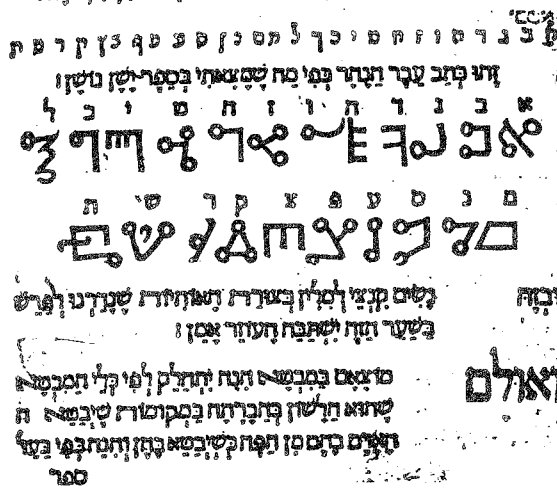 א ב ג ד ה ו ז ח ט י כ ך ל מ ם נ ן ס ע פ ף צ ץ ק ר ש ת
זהו כתב עבר הנהר כפי מה שמצאתי בספר ישן נושן:
א ב ג ד ה ו ז ח ט י כ ל
מ נ ס ע פ צ ק ר ש ת
נשים קנצי למלין בצורת האותיות שנדרנו לפרש
בשער הזה ישתבח העוזר אמן:
ואולם
מוצאם במבטא הנה יתחלק לפי כלי המבטא
שהוא הלשון בהברתה במקומות שיבטא ה
האדם בהם מן הפה כשיבטא בהן והנה בפי בעל
ספר